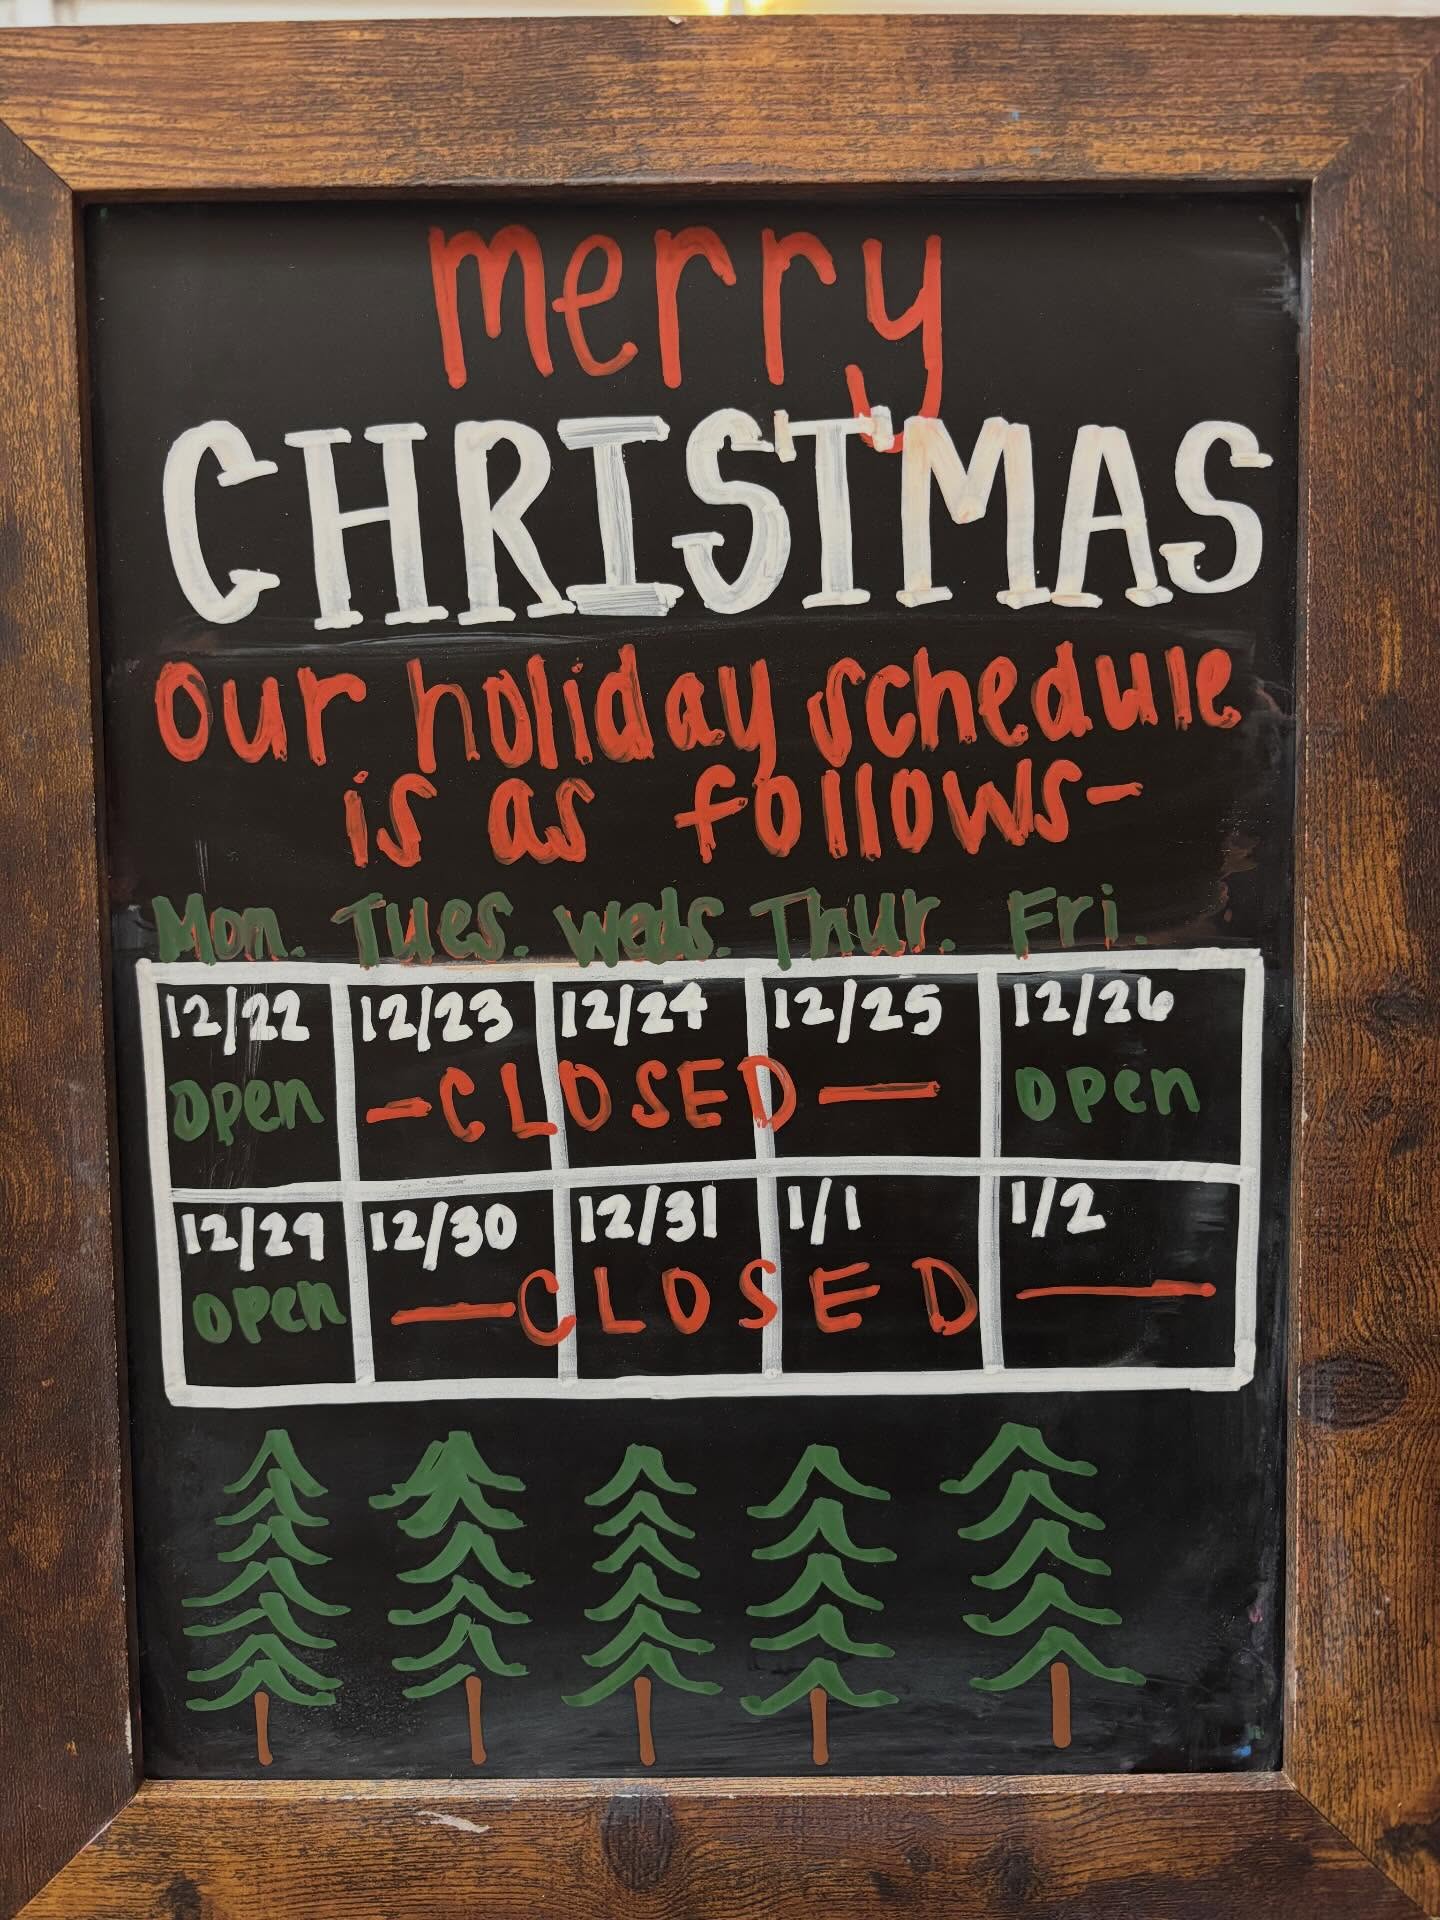 merry
CHRISTMAS
Our holiday schedule
is as follows-
Mon. Tues. Weds. Thur. Fri.
12/22 12/23 12/24 12/25 12/26
Open -CLOSED- Open
12/29 12/30 12/31 1/1 1/2
Open -CLOSED-